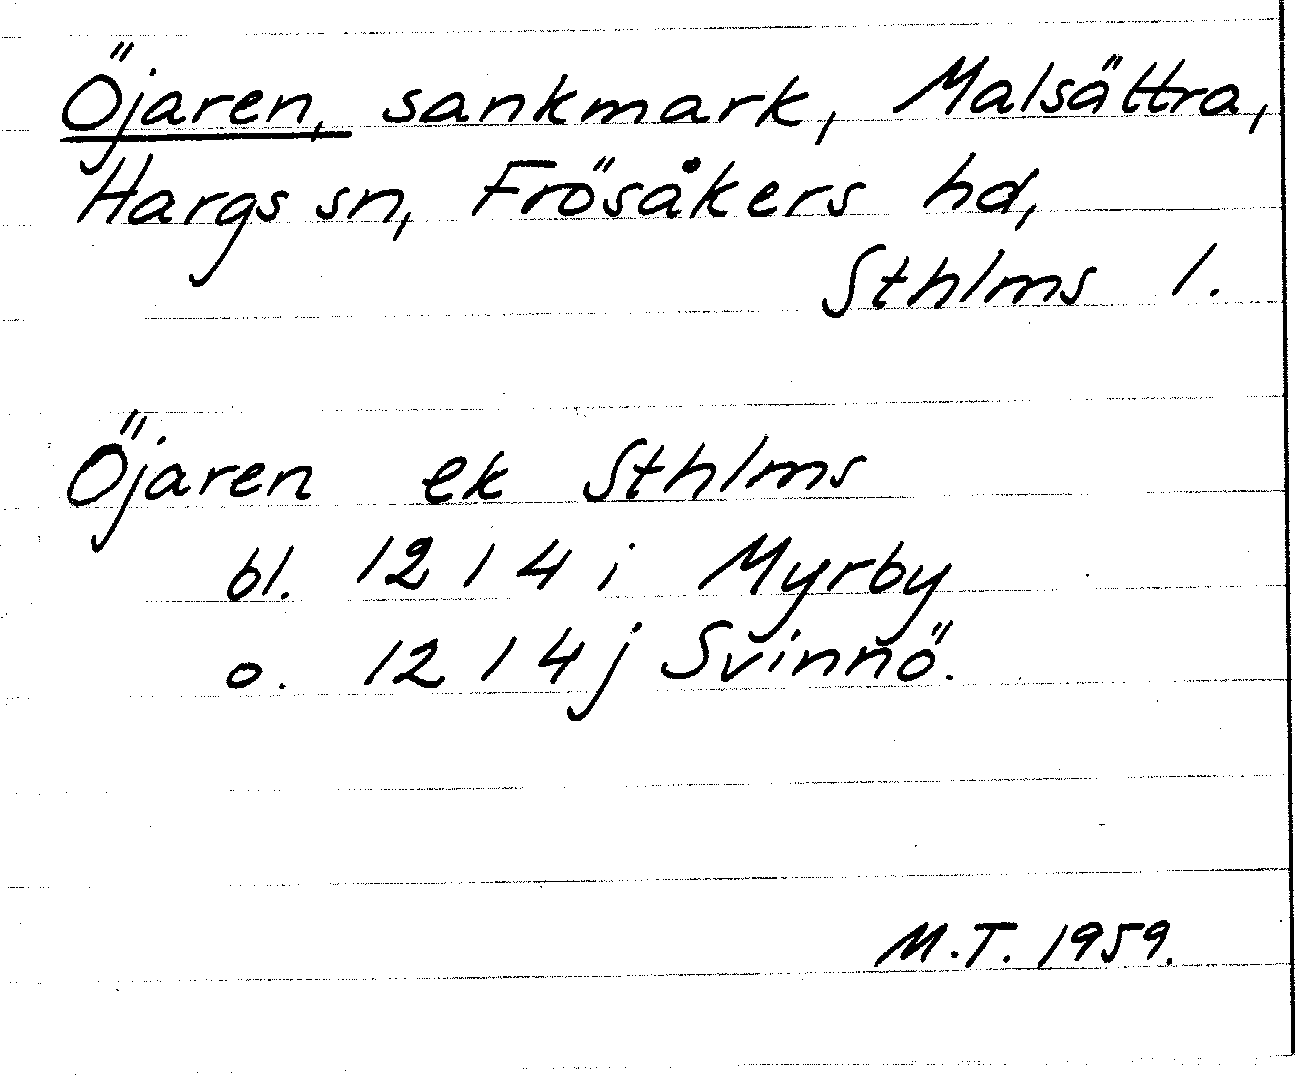 Öjaren, sankmark, Malsättra,
Hargs sn, Frösåkers hd,
Sthlms l.
Öjaren ek Sthlms
bl. 12 I 4 i Myrby
o. 12 I 4 j Svinnö.
M.T. 1959.